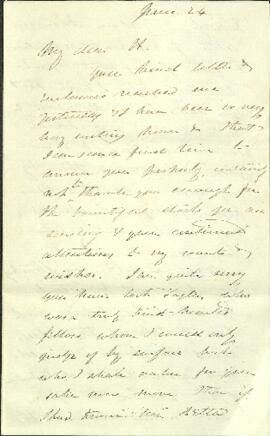 June 24
My dear H.
your kind letter &
enclosures reached me
yesterday & I have been so very
busy writing home & that
I can scarce find time to
answer you properly, certainly
not to thank you enough for
the bountiful stock you are
sending & your continued
attentions to my wants &
wishes. I am quite sorry
you have lost Taylor who
was a truly kind-hearted
fellow whom I could only
judge of by surface but
who I shall value for your
sake was more than if
I had known him better